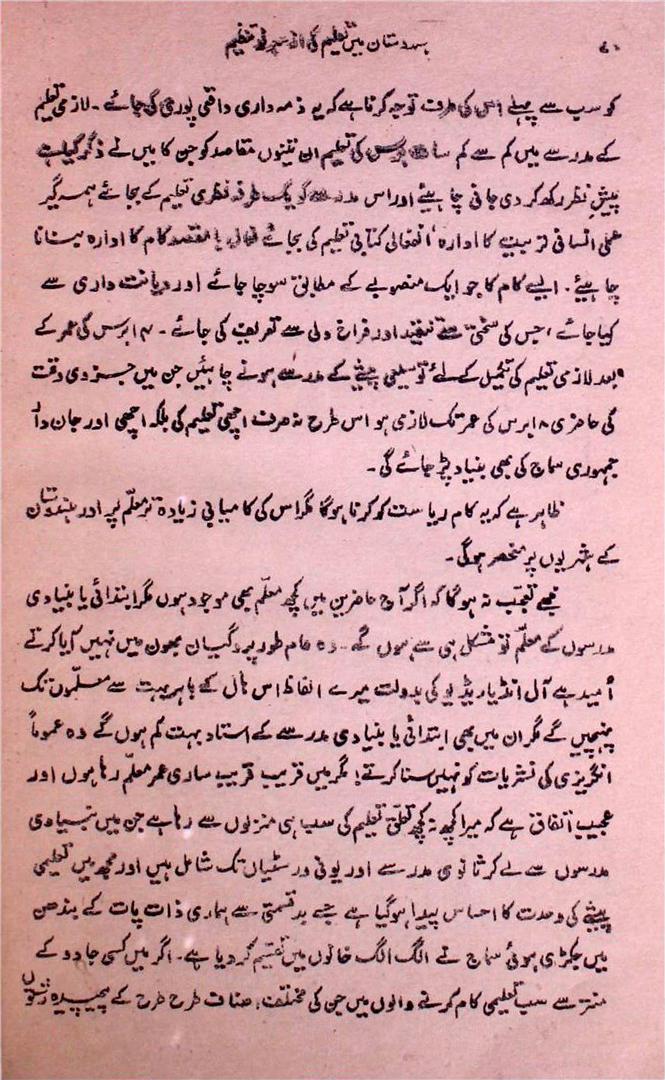 ۶۰ ہندوستان میں تعلیم کی از سر نو تنظیم
کو سب سے پہلے اس کی طرف توجہ کرنا ہے کہ یہ ذمہ داری واقعی پوری کی جائے۔ لازمی تعلیم
کے مدرسے میں کم سے کم سات برس کی تعلیم ان تینوں مقاصد کو جن کا میں نے ذکر کیا ہے
پیش نظر رکھ کر دی جانی چاہیئے اور اس مدرسے کو یک طرفہ نظری تعلیم کے بجائے ہمہ گیر
عملی انسانی تربیت کا ادارہ، انفعالی کتابی تعلیم کی بجائے فعالی با مقصد کام کا ادارہ بنانا
چاہیئے۔ ایسے کام کا جو ایک منصوبے کے مطابق سوچا جائے اور دیانت داری سے
کیا جائے، جس کی سختی سے تنقید اور فراخ دلی سے تعریف کی جائے۔ ۱۴ برس کی عمر کے
بعد لازمی تعلیم کی تکمیل کے لئے توسیعی پیشے کے مدرسے ہونے چاہئیں جن میں جزوی وقت
کی حاضری ۱۸ برس کی عمر تک لازمی ہو اس طرح نہ صرف اچھی تعلیم کی بلکہ اچھی اور جان دار
جمہوری سماج کی بھی بنیاد پڑ جائے گی۔
ظاہر ہے کہ یہ کام ریاست کو کرنا ہوگا مگر اس کی کامیابی زیادہ تر معلّم پر اور ہندوستان
کے شہریوں پر منحصر ہوگی۔
مجھے تعجب نہ ہوگا کہ اگر آج حاضرین میں کچھ معلّم بھی موجود ہوں مگر ابتدائی یا بنیادی
مدرسوں کے معلّم تو مشکل ہی سے ہوں گے۔ وہ عام طور پر وگیان بھون میں نہیں آیا کرتے
اُمید ہے آل انڈیا ریڈیو کی بدولت میرے الفاظ اس ہال کے باہر بہت سے معلموں تک
پہنچیں گے مگر ان میں بھی ابتدائی یا بنیادی مدرسے کے استاد بہت کم ہوں گے وہ عموماً
انگریزی کی نشریات کو نہیں سنا کرتے! مگر میں قریب قریب ساری عمر معلّم رہا ہوں اور
عجیب اتفاق ہے کہ میرا کچھ نہ کچھ تعلق تعلیم کی سب ہی منزلوں سے رہا ہے جن میں بنیادی
مدرسوں سے لے کر ثانوی مدرسے اور یونی ورسٹیاں تک شامل ہیں اور مجھ میں تعلیمی
پیشے کی وحدت کا احساس پیدا ہوگیا ہے جسے بدقسمتی سے ہماری ذات پات کے بندھن
میں جکڑی ہوئی سماج نے الگ الگ خانوں میں تقسیم کر دیا ہے۔ اگر میں کسی جادو کے
منتر سے سب تعلیمی کام کرنے والوں میں جن کی مختلف اصناف طرح طرح کے پیچیدہ رشتوں